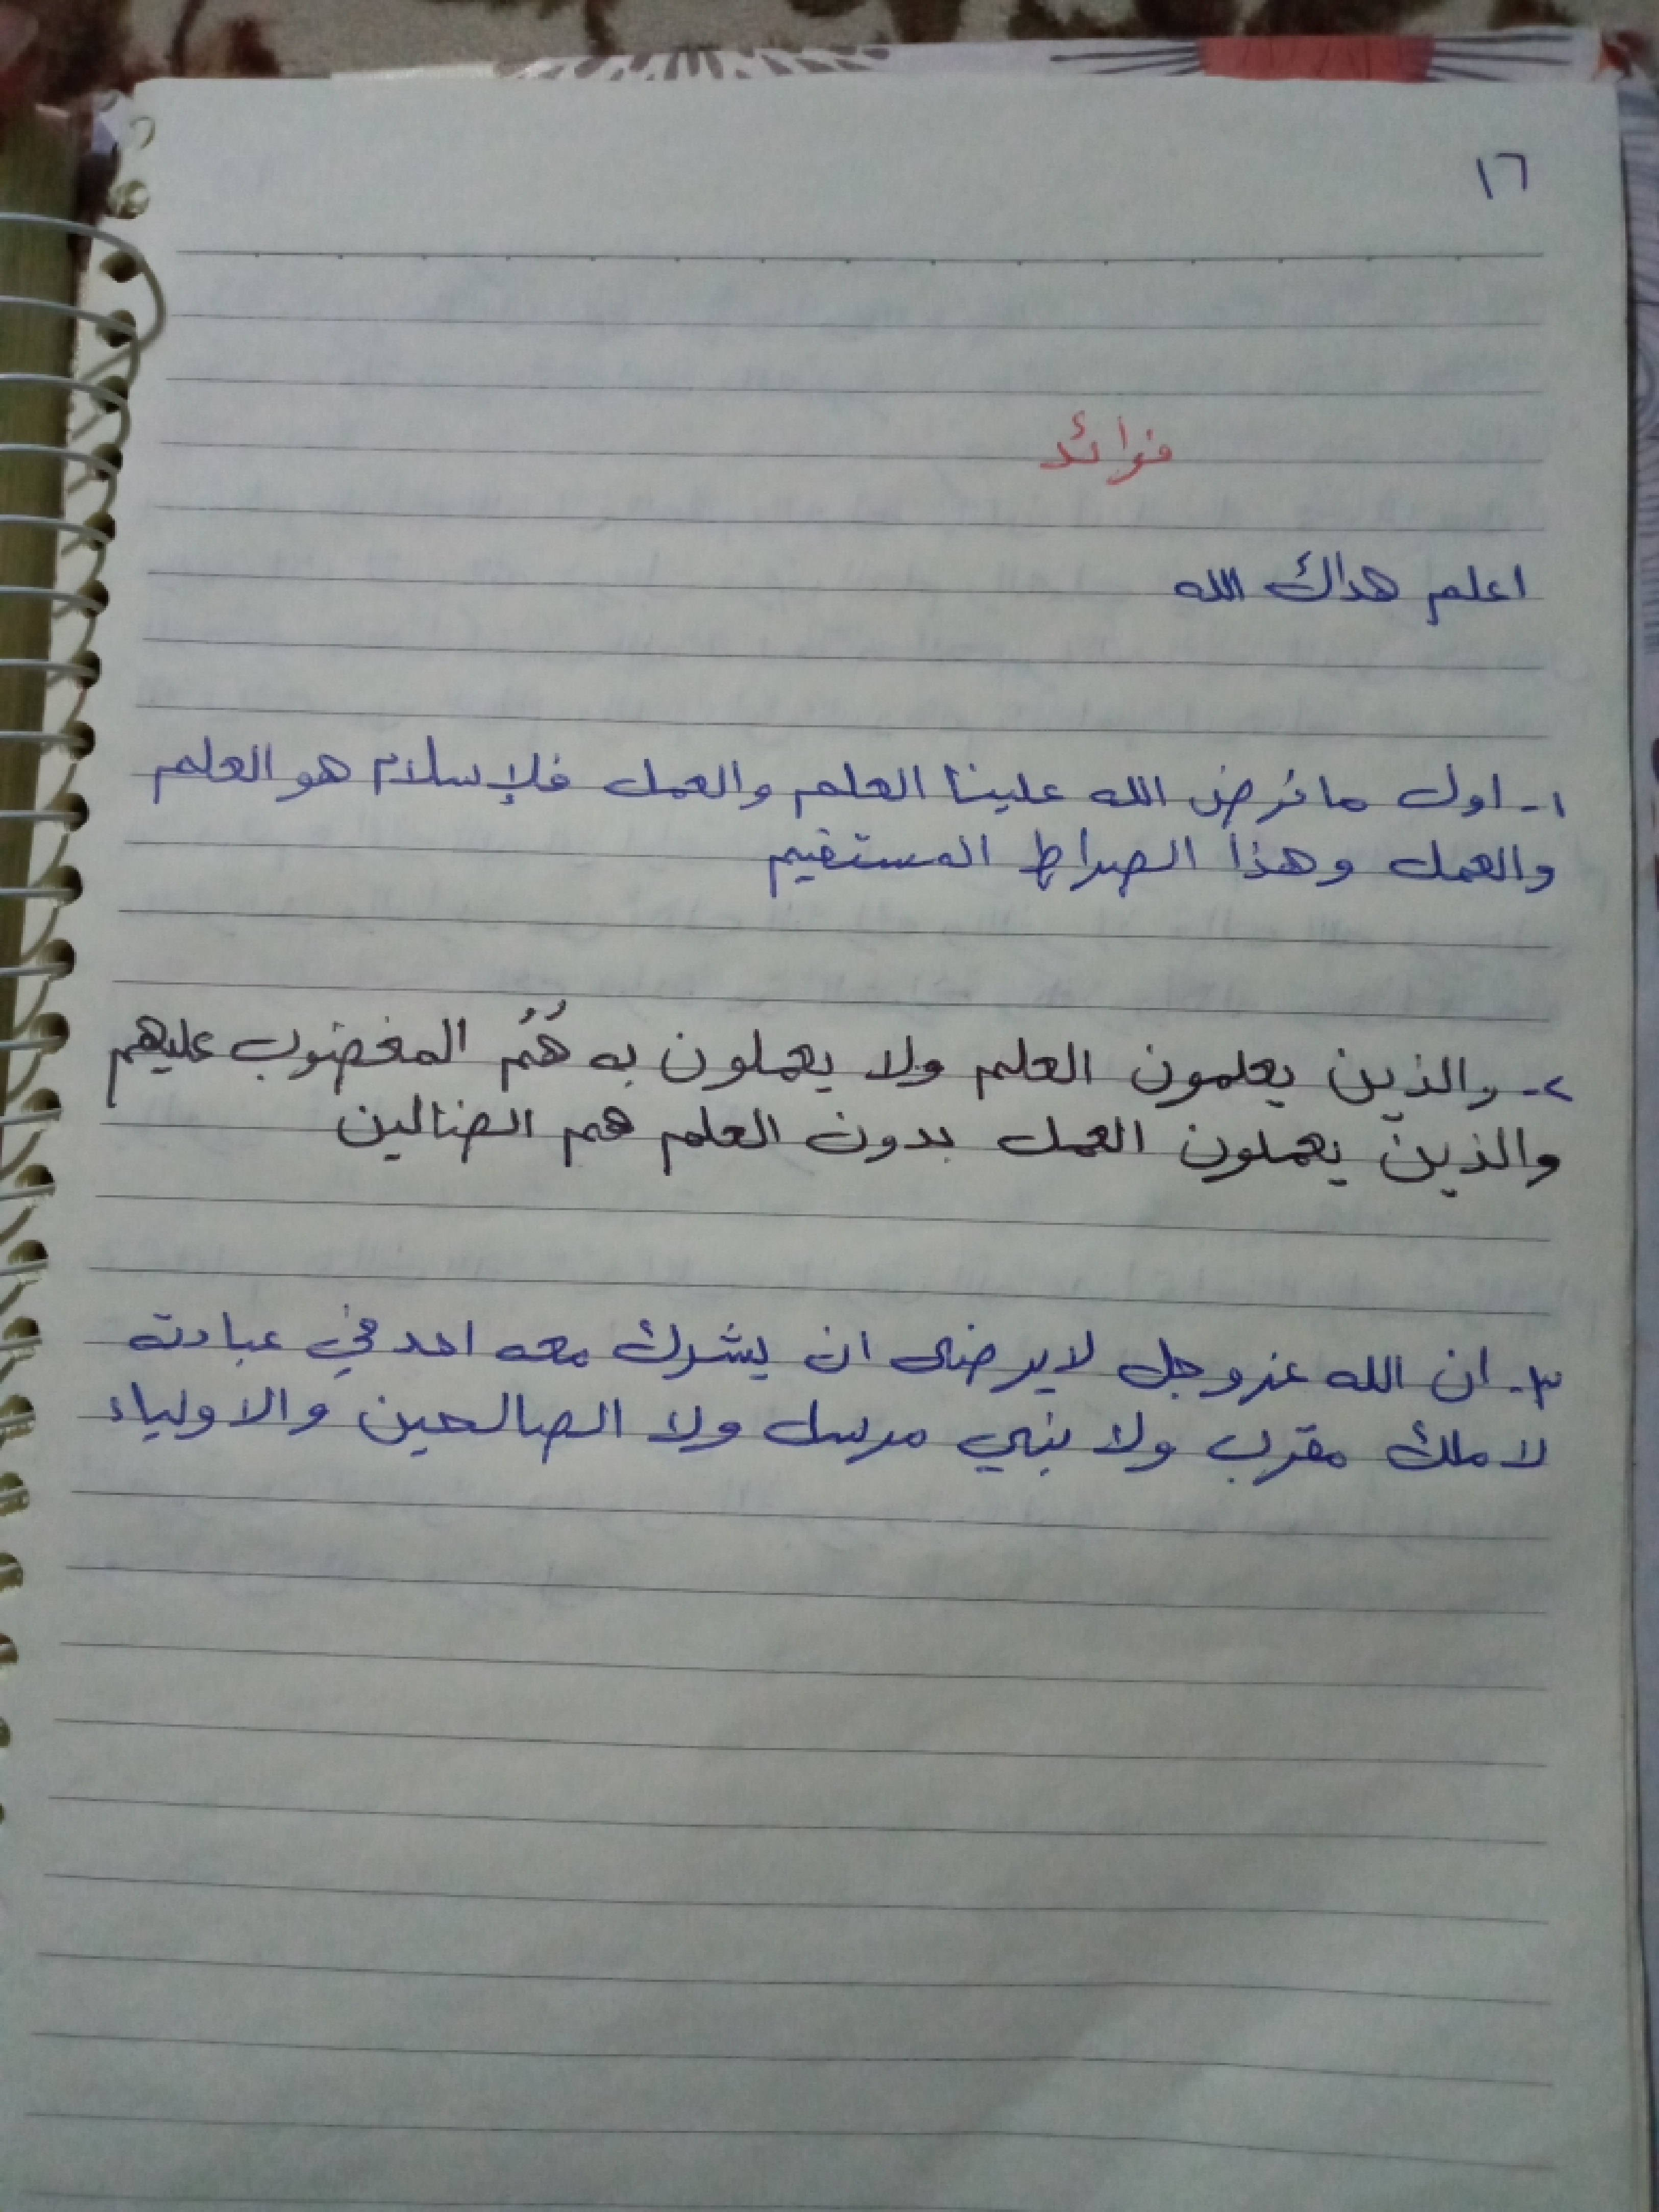 ١٦
فوائد
اعلم هداك الله
١- اول ما فرض الله علينا العلم والعمل فلإسلام هو العلم
والعمل وهذا الصراط المستقيم
٢- والذين يعلمون العلم ولا يعملون به هُمُ المغضوب عليهم
والذين يعملون العمل بدون العلم هم الضالين
٣- ان الله عزوجل لا يرضى ان يشرك معه احد في عبادته
لا ملك مقرب ولا نبي مرسل ولا الصالحين والاولياء